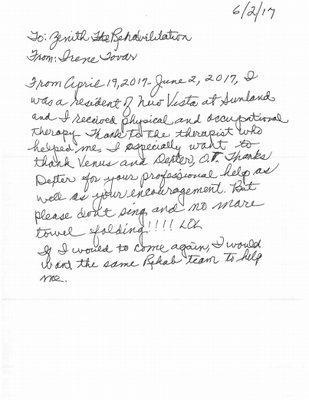 6/2/17
To: Zenith The Rehabilitation
From: Irene Tovar
From April 19, 2017 - June 2, 2017, I
was a resident of New Vista at Sunland
and I received physical and occupational
therapy. Thank to the therapist who
helped me. I especially want to
thank Venus and Dexter, O.T. Thanks
Dexter for your professional help as
well as your encouragement. But
please don't sing and no more
towel folding!!!! LOL
If I would to come again, I would
want the same Rehab team to help
me.